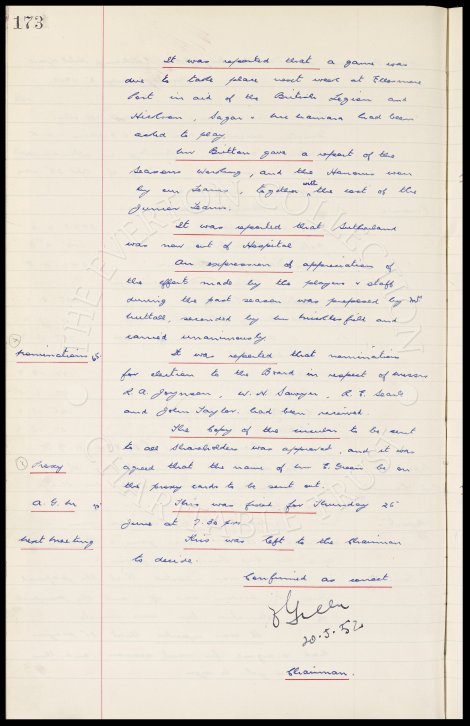 173
It was reported that a game was
due to take place next week at Ellesmere
Port in aid of the British Legion and
Hickson, Sagar & McNamara had been
asked to play.
Mr Britton gave a report of the
Seasons working, and the Honours won
by our Teams, together with the cost of the
Junior Teams.
It was reported that Sutherland
was now out of Hospital
An expression of appreciation of
the effort made by the players & staff
during the past season was proposed by Mr
Nuttall, seconded by Mr Micklesfield and
carried unanimously.
Nominations
It was reported that nominations
for election to the Board in respect of Messrs
R. A. Joynson, W. H. Sawyer, R. E. Searle
and John Taylor had been received.
The Copy of the circular to be sent
to all shareholders was approved, and it was
Proxy
agreed that the name of Mr E Green be on
the proxy cards to be sent out.
A. G. M
This was fixed for Thursday 25
June at 7.30 pm.
Next Meeting
This was left to the Chairman
to decide.
Confirmed as correct
Green
20.5.52
Chairman.
THE EVERTON COLLECTION
CHARITABLE TRUST